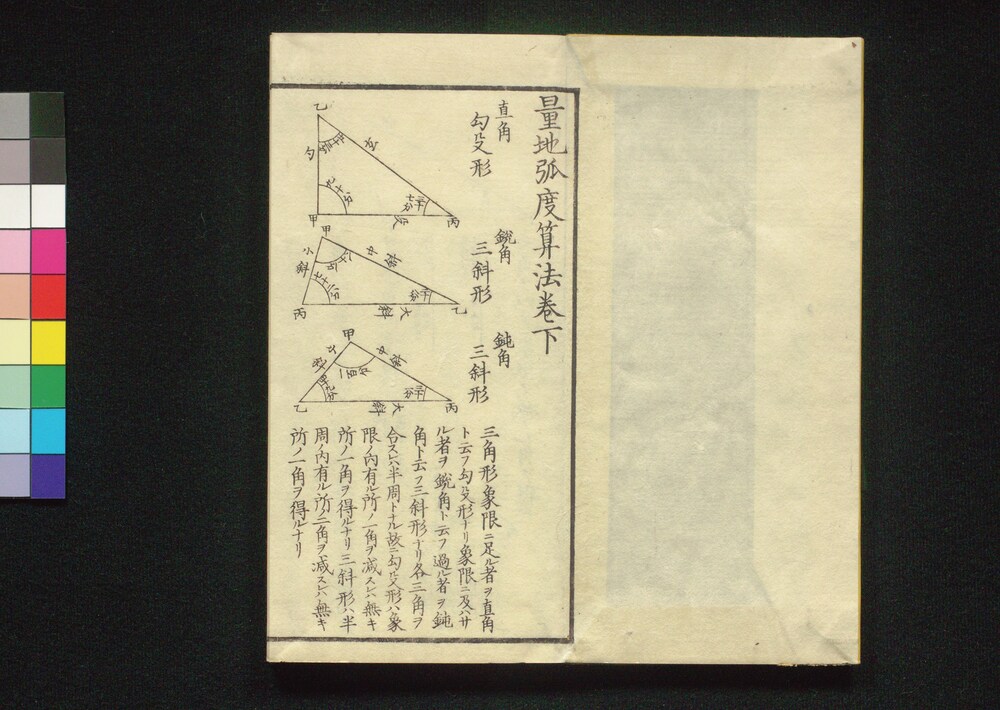 量地弧度算法巻下
直角
勾殳形
乙
勾
玄
甲
殳
丙
鋭角
三斜形
甲
小斜
中斜
丙
大斜
乙
鈍角
三斜形
甲
小斜
中斜
乙
大斜
丙
三角形象限ニ足ル者ヲ直角
ト云フ勾殳形ナリ象限ニ及ハサ
ル者ヲ鋭角ト云フ過ル者ヲ鈍
角ト云フ三斜形ナリ各三角ヲ
合スレハ半周トナル故ニ勾殳形ハ象
限ノ内有ル所ノ一角ヲ減スレハ無キ
所ノ一角ヲ得ルナリ三斜形ハ半
周ノ内有ル所ノ二角ヲ減スレハ無キ
所ノ一角ヲ得ルナリ